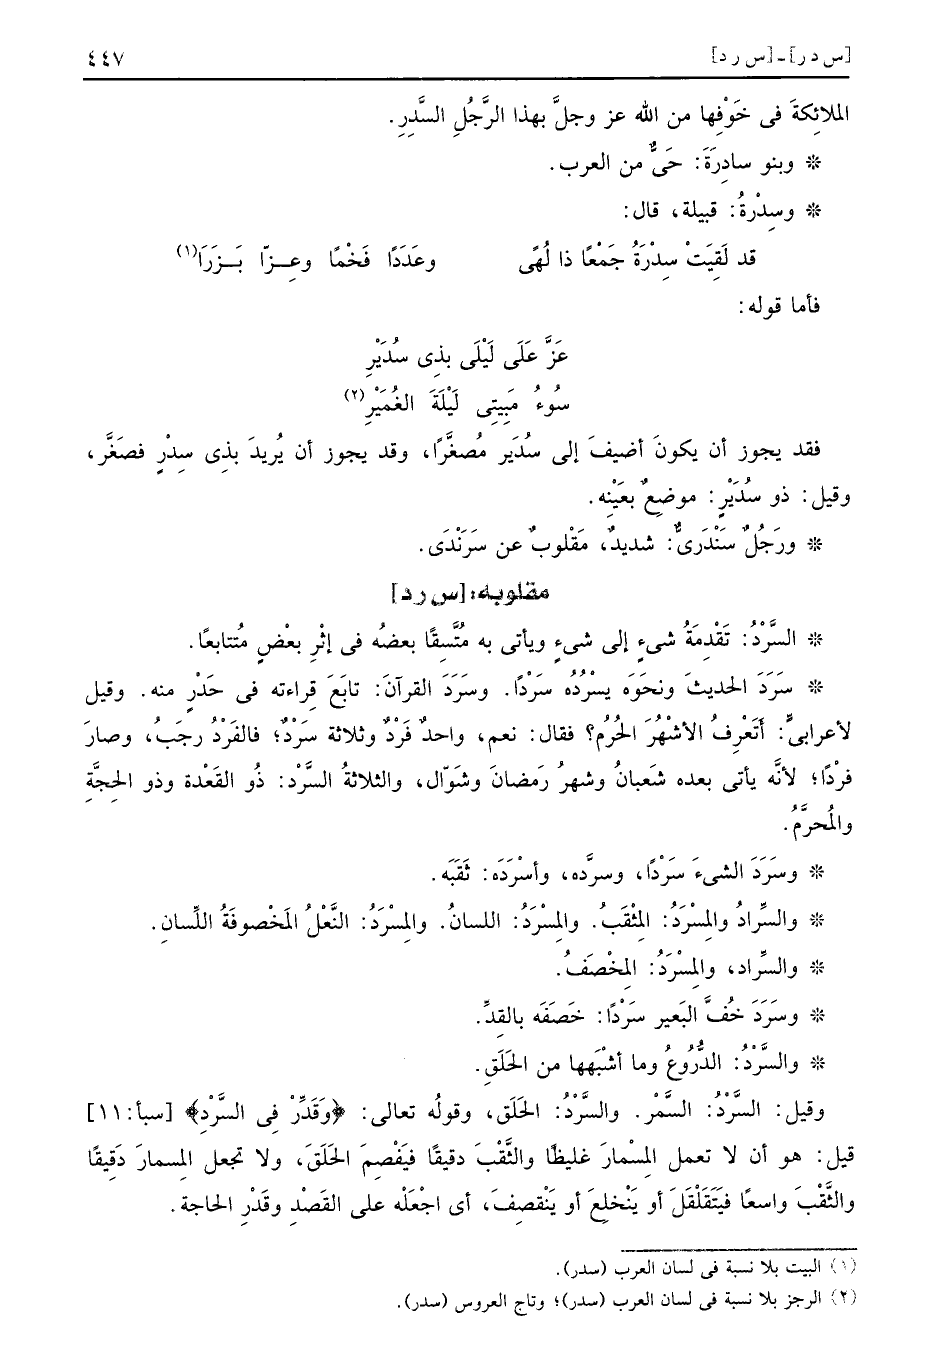 [س د ر] - [س ر د] ٤٤٧
الملائِكةَ فى خَوْفِها من الله عز وجلَّ بهذا الرَّجُلِ السَّدِرِ.
* وبنو سادِرَةَ: حَىٌّ من العرب.
* وسِدْرةُ: قبيلة، قال:
قد لَقِيَتْ سِدْرَةُ جَمْعًا ذا لُهًى وعَدَدًا فَخْمًا وعِــزّا بَــزَرَا(١)
فأما قوله:
عَزَّ عَلَى لَيْلَى بِذِى سُدَيْرِ
سُوءُ مَبِيتِى لَيْلَةَ الغُمَيْرِ(٢)
فقد يجوز أن يكونَ أضيفَ إلى سُدَير مُصغَّرًا، وقد يجوز أن يُريدَ بذِى سِدْرٍ فصَغَّر،
وقيل: ذو سُدَيْرٍ: موضعٌ بعَيْنِه.
* ورَجُلٌ سَنْدَرىٌّ: شديدٌ، مَقْلوبٌ عن سَرَنْدَى.
مقلوبه: [س ر د]
* السَّرْدُ: تَقْدِمَةُ شىءٍ إلى شىءٍ ويأتى به مُتَّسِقًا بعضُه فى إثْرِ بعْضٍ مُتتابعًا.
* سَرَدَ الحديثَ ونحوَه يسْرُدُه سَرْدًا. وسَرَدَ القرآنَ: تابَعَ قِراءته فى حَدْرٍ منه. وقيل
لأعرابىٍّ: أتَعْرِفُ الأشْهُرَ الحُرُم؟ فقال: نعم، واحدٌ فَرْدٌ وثلاثة سَرْدٌ؛ فالفَرْدُ رجَبُ، وصارَ
فرْدًا؛ لأنَّه يأتى بعده شَعبانُ وشهرُ رَمضانَ وشَوّال، والثلاثةُ السَّرْد: ذُو القَعْدة وذو الحِجَّةِ
والمُحرَّمُ.
* وسَرَدَ الشىءَ سَرْدًا، وسرَّده، وأسْرَدَه: ثَقَبَه.
* والسِّرادُ والمِسْرَدُ: المِثْقَبُ. والمِسْرَدُ: اللسانُ. والمِسْرَدُ: النَّعْلُ المَخْصوفَةُ اللِّسانِ.
* والسِّراد، والمِسْرَدُ: المِخْصَفُ.
* وسَرَدَ خُفَّ البَعير سَرْدًا: خَصَفَه بالقِدِّ.
* والسَّرْدُ: الدُّرُوعُ وما أشْبَهها من الحَلَقِ.
وقيل: السَّرْدُ: السَّمْر. والسَّرْدُ: الحَلَق، وقولُه تعالى: ﴿وَقَدِّرْ فِى السَّرْدِ﴾ [سبأ: ١١]
قيل: هو أن لا تعمل المِسْمارَ غليظًا والثَّقْبَ دقيقًا فيَفْصِمَ الحَلَقَ، ولا تجعل المِسمارَ دَقيقًا
والثَّقْبَ واسعًا فيَتَقَلْقَلَ أو يَنْخلِعَ أو يَنْقصِفَ، أى اجْعَلْه على القَصْدِ وقَدْرِ الحاجة.
(١) البيت بلا نسبة فى لسان العرب (سدر).
(٢) الرجز بلا نسبة فى لسان العرب (سدر)؛ وتاج العروس (سدر).